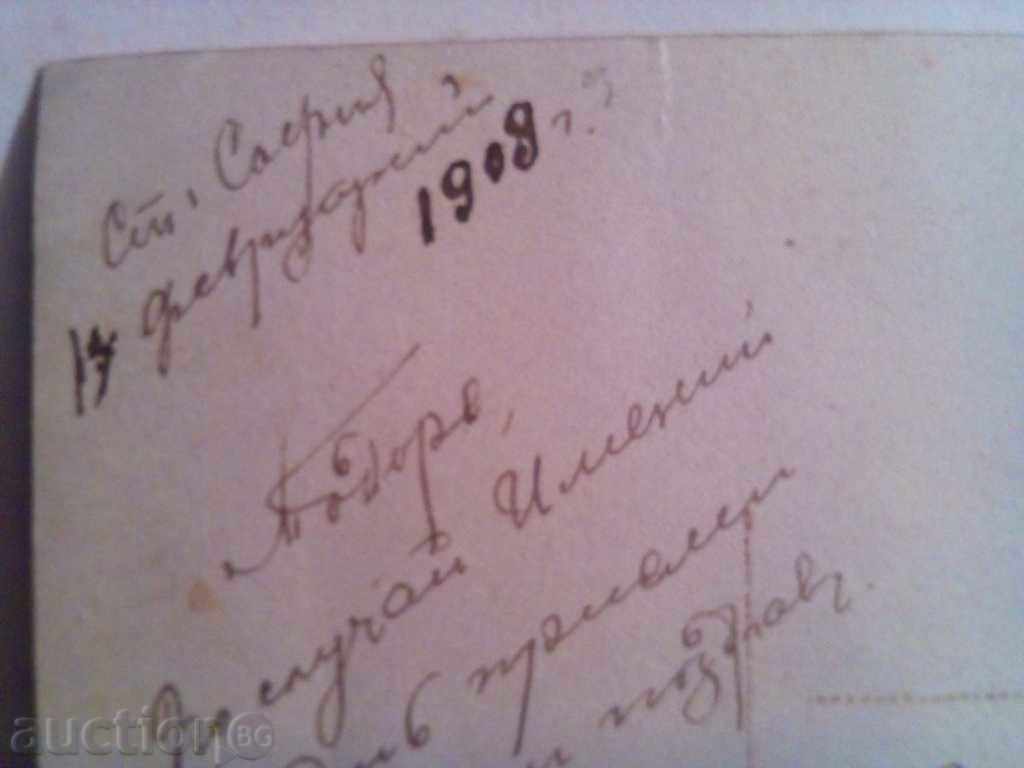 Ст. София
17 февруарий
1908 г.
Тодоре,
По случай Имений
день приеми
поздрав.
auction BG